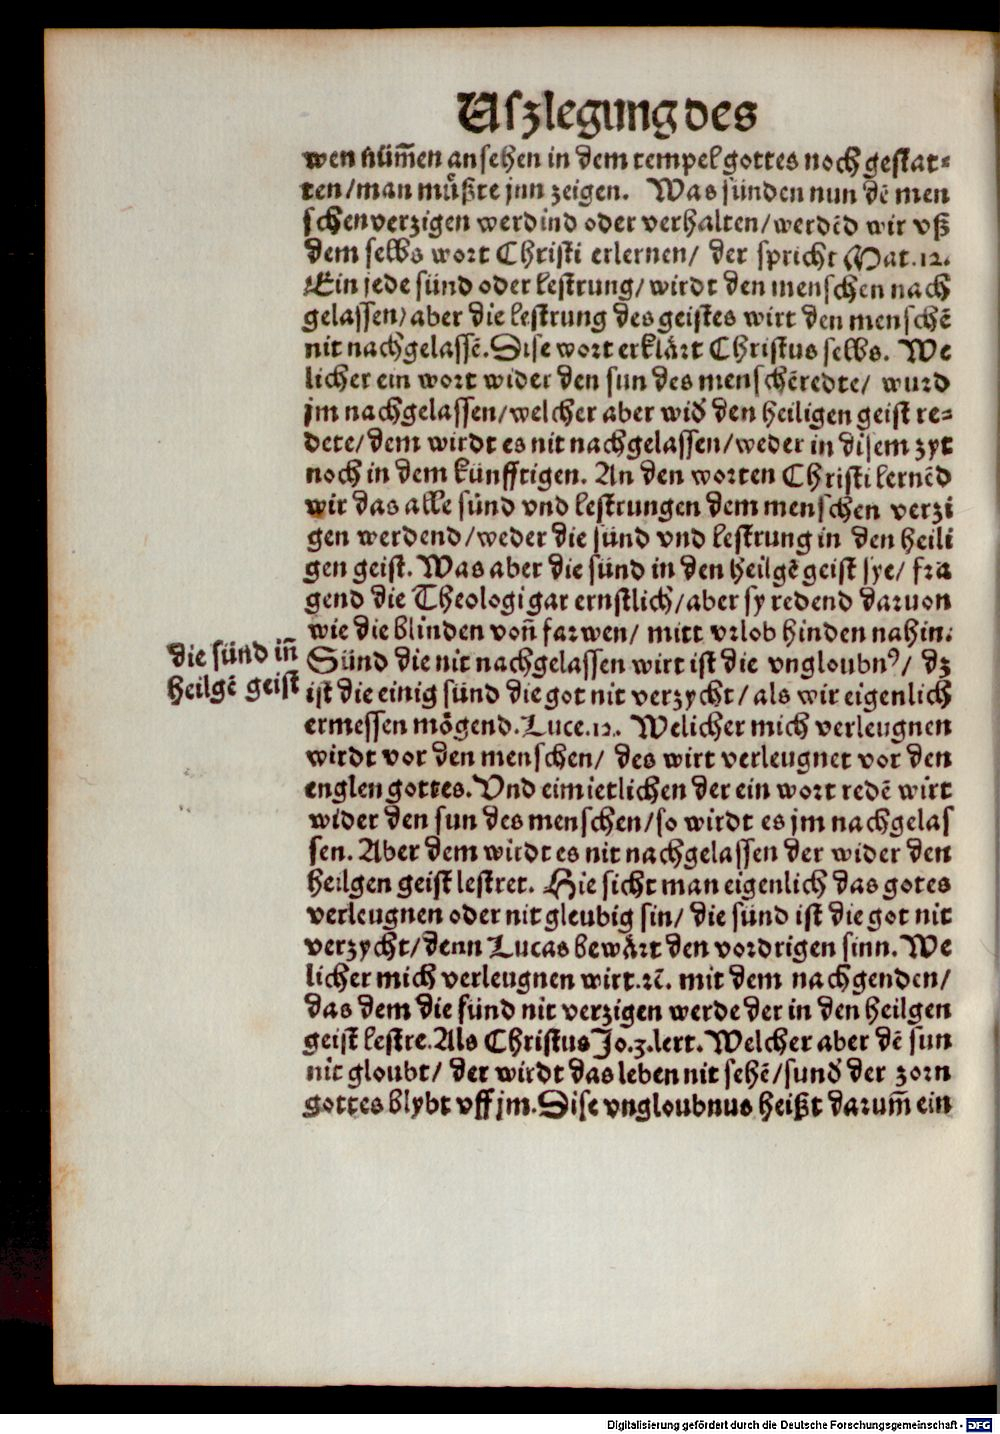 Uſzlegung des
wen nüm̃en anſehen in dem tempel gottes noch geſtat⸗
ten/man müßte jnn zeigen. Was ſünden nun dē men
ſchen verzigen werdind oder verhalten/werdēd wir vß
dem ſelbs wort Chriſti erlernen/ der ſpricht Mat.12.
Ein jede ſünd oder leſtrung/ wirdt den menſchen nach
gelaſſen/ aber die leſtrung des geiſtes wirt den menſchē
nit nachgelaſſē. Diſe wort erklärt Chriſtus ſelbs. We
licher ein wort wider den ſun des menſchē redte/ wurd
jm nachgelaſſen/welcher aber wid̕ den heiligen geiſt re⸗
dete/dem wirdt es nit nachgelaſſen/weder in diſem zyt
noch in dem künfftigen. An den worten Chriſti lernēd
wir das alle ſünd vnd leſtrungen dem menſchen verzi
gen werdend/weder die ſünd vnd leſtrung in den heili
gen geiſt. Was aber die ſünd in den heilgē geiſt ſye/ fra
gend die Theologi gar ernſtlich/aber ſy redend daruon
wie die blinden von̄ farwen/ mitt vrlob hinden nahin.
die ſünd in̄
heilgē geiſt
Sünd die nit nachgelaſſen wirt iſt die vngloubnꝰ/ dz
iſt die einig ſünd die got nit verzycht/ als wir eigenlich
ermeſſen mögend. Luce.12. Welicher mich verleugnen
wirdt vor den menſchen/ des wirt verleugnet vor den
englen gottes. Vnd eim ietlichen der ein wort redē wirt
wider den ſun des menſchen/ſo wirdt es jm nachgelaſ
ſen. Aber dem wirdt es nit nachgelaſſen der wider den
heilgen geiſt leſtret. Hie ſicht man eigenlich das gotes
verleugnen oder nit gleubig ſin/ die ſünd iſt die got nit
verzycht/denn Lucas bewärt den vordrigen ſinn. We
licher mich verleugnen wirt.ꝛc̄. mit dem nachgenden/
das dem die ſünd nit verzigen werde der in den heilgen
geiſt leſtre. Als Chriſtus Jo.3.lert. Welcher aber dē ſun
nit gloubt/ der wirdt das leben nit ſehē/ſund̕ der zorn
gottes blybt vff jm. Diſe vngloubnus heißt darum̄ ein
Digitalisierung gefördert durch die Deutsche Forschungsgemeinschaft - DFG